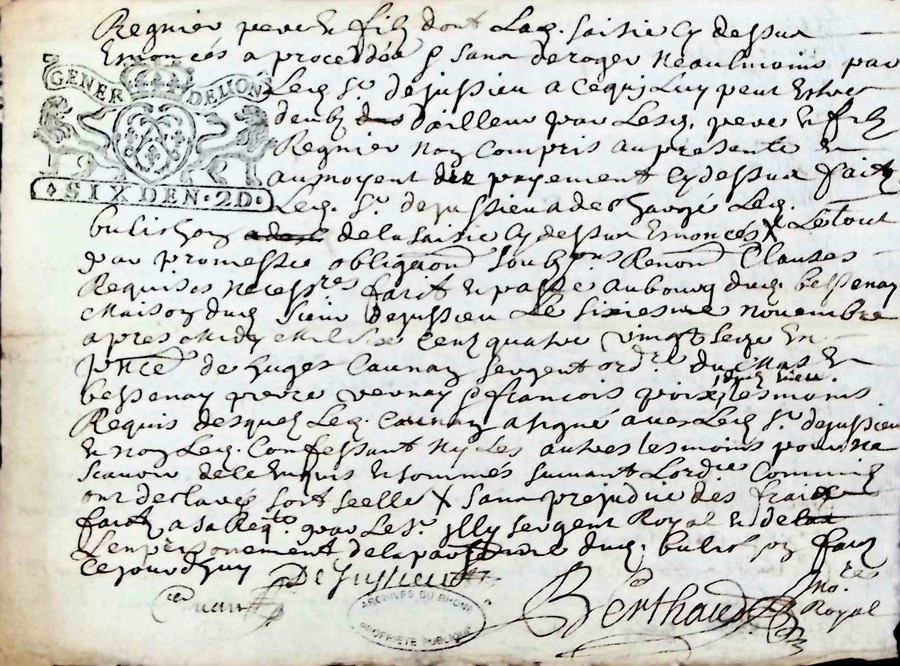 Regnier pere & filz dont Laq. saisie Cy dessus
Enoncés a proceddée & sans deroger neaulmoins par
GENER DELION
Leq Sr. dejussieu a Ceqz Luy peut Estre
deub dailleur par Lesq. pere & filz
Regnier non Compris au presente &
SIX DEN. 2D.
au moyent payement Cy dessus fait
Leq. Sr. dejussieu a deschargé Leq.
bulichon de la saisie Cy dessus Enoncés X Le tout
par promesse obligaon soubz Renon Clauses
Requises necessres fait & passé au bourg duq. bessenay
Maison duq Sieur dejussieu Le sixiesme novembre
apres Midy Mil six Cent quatre vingt seize En
pnce de huges Caunan sergent ordre du &
bessenay pierre vernay & francois dud. lieu tesmoins
Requis desquelz Leq. Caunan a signé avec Leq Sr. dejussieu
& non Leq. Confessant Ny Les autres tesmoins pour ne
scavoir de ce Enquis & sommés suivant Lordre Commun
ont declarés soit scelle X sans prejudice des fraix
fait a sa Reqte par Le Sr. Illy sergent Royal &
Lenprisonement de la personne duq. bulichon fait
Cejourdhuy DeJussieu
Caunan
ARCHIVES DU RHONE
PROPRIETE PUBLIQUE
Berthaud Nore
Royal